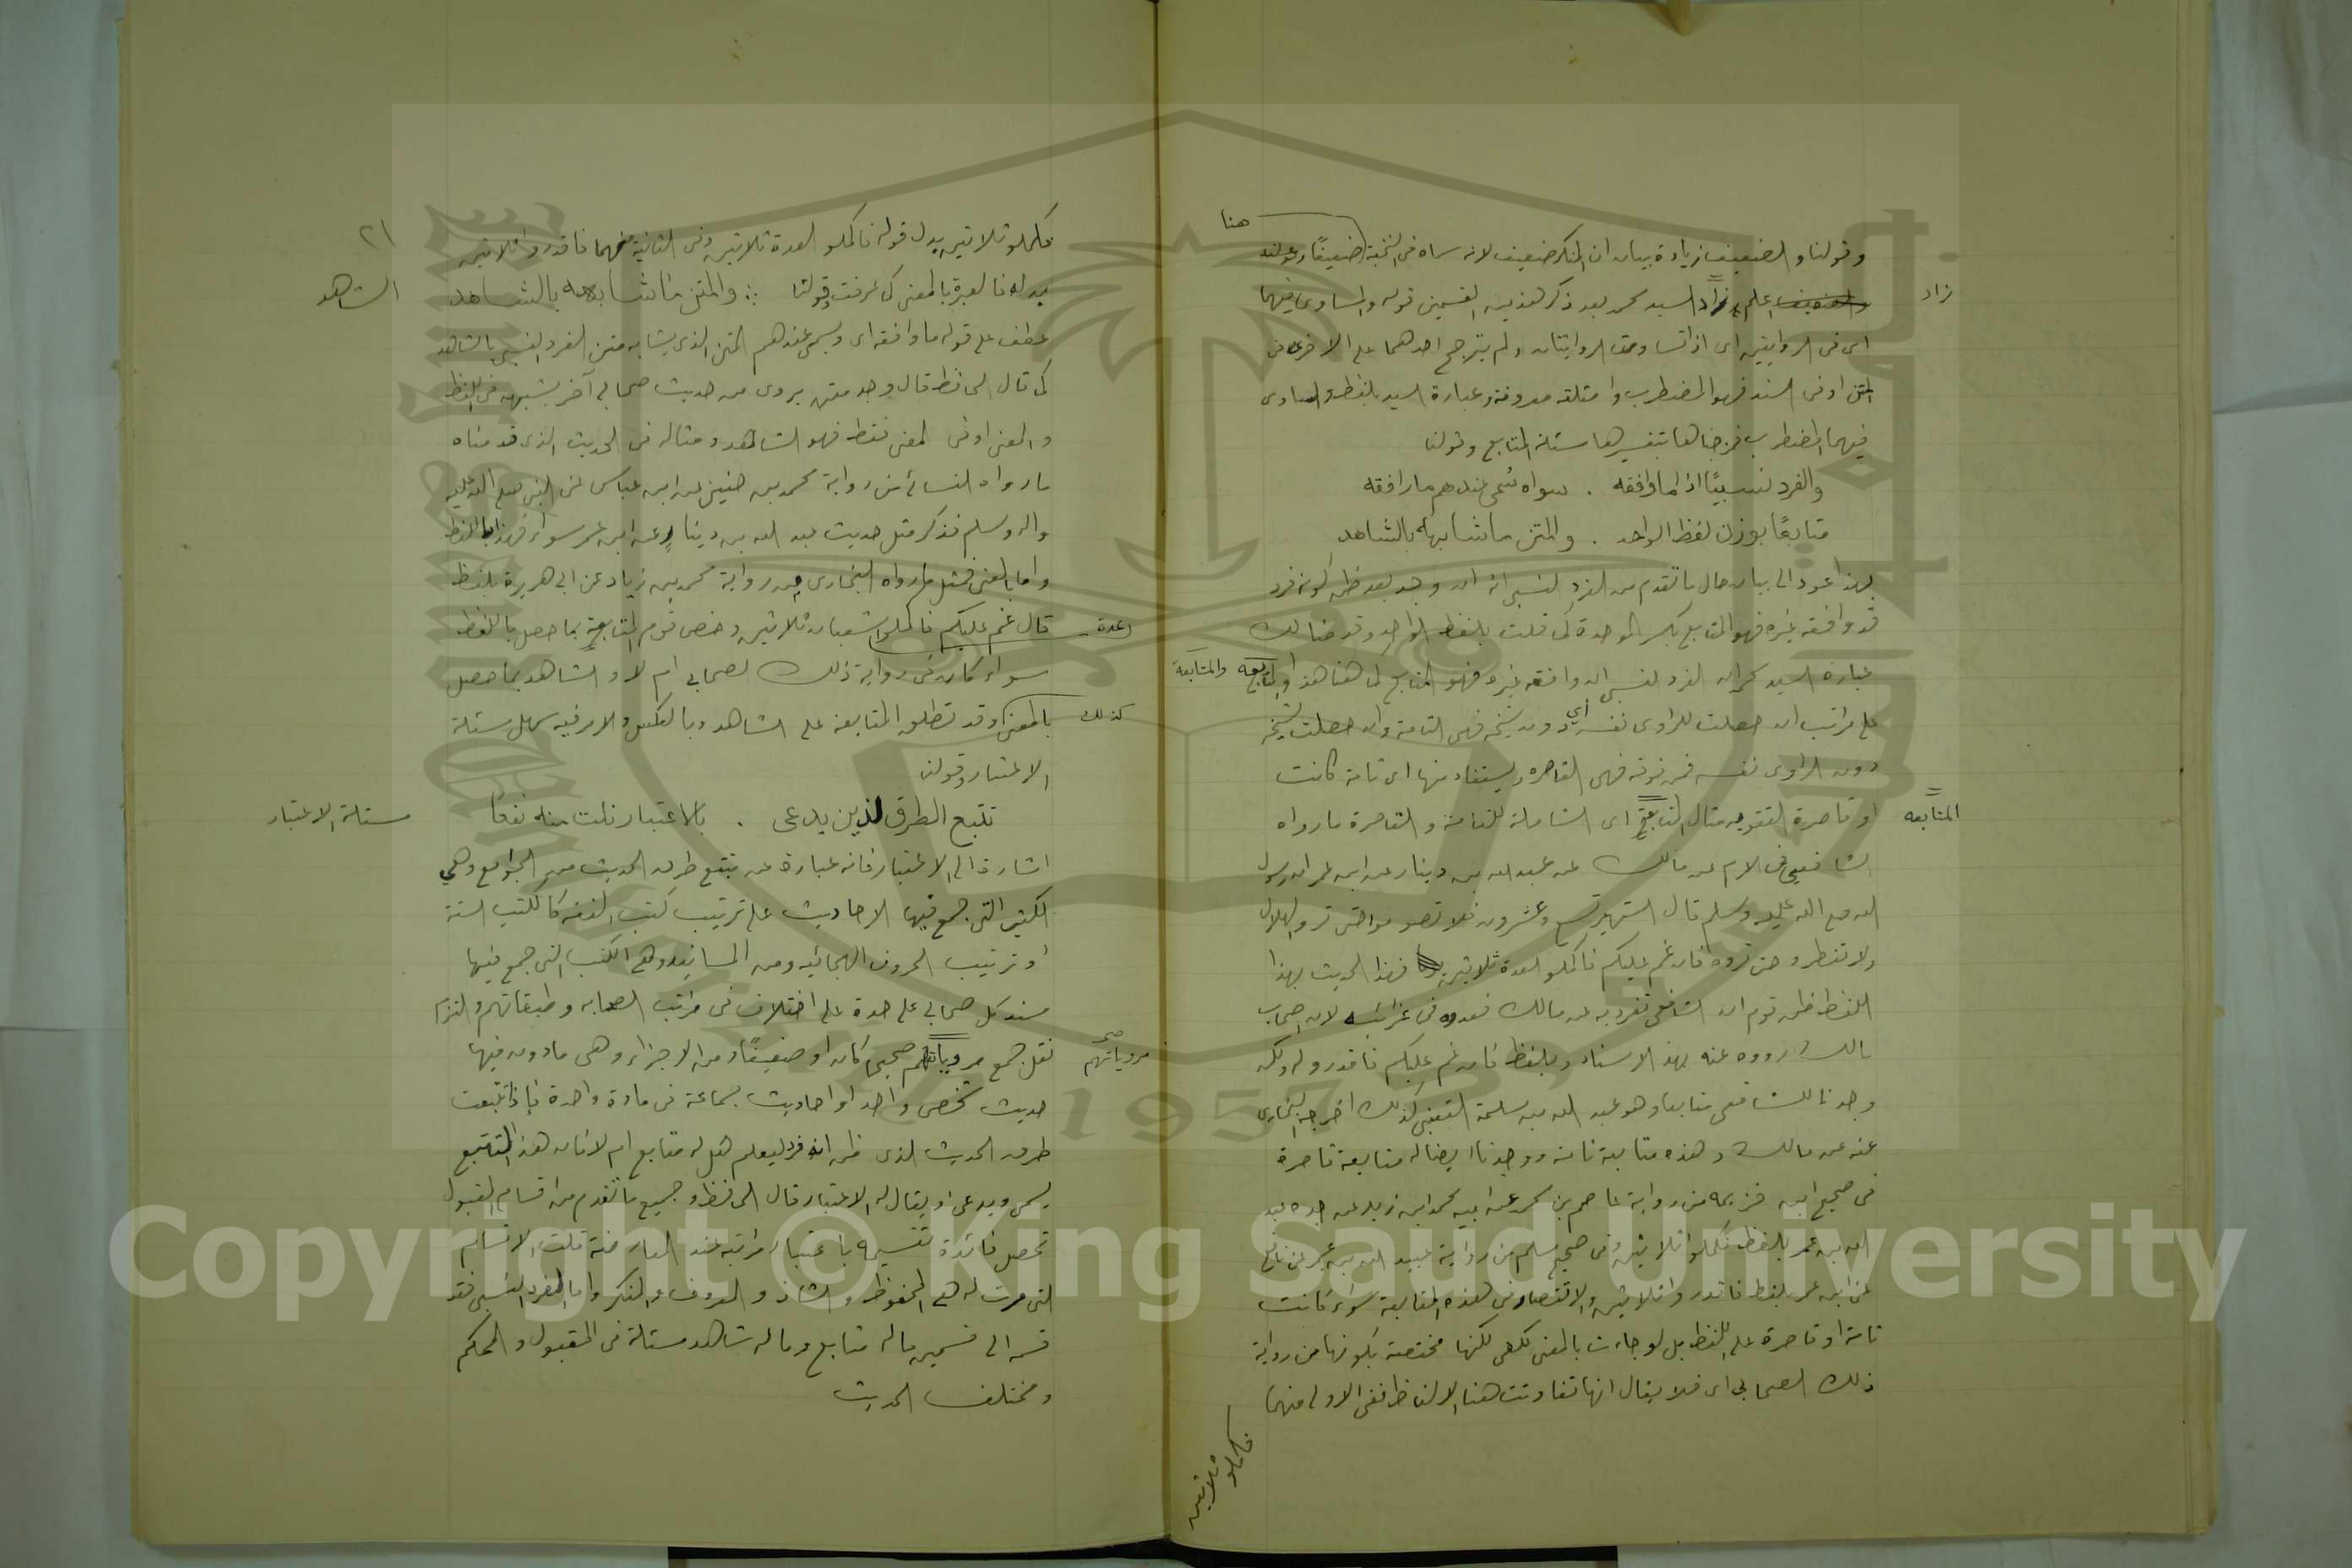 هنا
وقولنا والضعيف زيادة بيان ان المنكر ضعيف لانه سماه فى النخبة ضعيفًا
زاد
اعلم زاد السيد محمد بعد ذكر هذين القسمين قوله والمساوى فيهما
اى فى الروايتين اى اذا تساوت الروايتان ولم يترجح احدهما على الاخرى فى
المتن او فى السند فهو المضطرب وامثلته معروفة وعبارة السيد بلفظ والمساوى
فيهما المضطرب مسئلة المتابع وقولنا
والفرد نسبيًا اذا ما وافقه . سواه سُمى عندهم ما رافقه
متابعًا بوزن لفظ الواحد . والمتن ما شابهه بالشاهد
بهذا عود الى بيان حال ما تقدم من الفرد النسبى انه ان وجد بعد ظن كونه فرد
قد وافقه غيره فهو المتابع بكسر الموحدة كما قلت بلفظ الواحد وقد
عبارة السيد محمد ان الفرد النسبى ان وافقه غيره فهو المتابع والمتابعه
والمتابعة
على مراتب ان حصلت للراوى نفسه اي دون شيخه فهى التامة وان حصلت لشيخه
دون الراوى نفسه فمن فوقه فهى القاصرة ويستفاد منها اى تامة كانت
المتابعه
او قاصرة التقويه مثال المتابعة اى الشاملة للتامة والقاصرة ما رواه
الشافعي فى الام عن مالك عن عبد الله بن دينار عن ابن عمر ان رسول
الله صلى الله عليه وسلم قال الشهر تسع وعشرون فلا تصوموا حتى تروا الهلال
ولا تفطروا حتى تروه فان غم عليكم فاكملوا العدة ثلاثين فهذا الحديث بهذا
اللفظ ظن قوم ان الشافعى تفرد به عن مالك فعدوه فى غرائبه لان اصحاب
مالك رووه عنه بهذا الاسناد وبلفظ فان غم عليكم فاقدروا له ولكن
وجدنا للشافعى متابعا وهو عبد الله بن مسلمة القعنبى كذلك اخرجه البخارى
عنه عن مالك وهذه متابعة تامة ووجدنا ايضا له متابعة قاصرة
فى صحيح ابن خزيمه من رواية عاصم بن محمد عن ابيه محمد ابن زيد عن جده عبد
الله بن عمر بلفظ فكملوا ثلاثين وفى صحيح مسلم من رواية عبيد الله بن عمر عن نافع
عن ابن عمر بلفظ فاقدروا ثلاثين ولا اقتصار فى هذه المتابعة سواء كانت
تامة او قاصرة على اللفظ بل لو جاءت بالمعنى لكفى لكنها مختصة بكونها من رواية
ذلك الصحابي اى فلا يقال انها تفاوتت هنا الالفاظ ففى الاولى منهما
فكملو ثلاثين
٢١
فكملو ثلاثين بدل قوله فاكملو العدة ثلاثين وفى الثانية منهما فاقدروا ثلاثين
الشاهد
بدله فالعبرة بالمعنى كما عرفت وقولنا ∴ والمتن ما شابهه بالشاهد
عطف على قوله ما وافقه اى ويسمى عندهم المتن الذى يشابه متن الفرد النسبى بالشاهد
كما قال الحافظ قال وجد متن يروى من حديث صحابي آخر يشبهه فى اللفظ
والمعنى او فى المعنى فقط فهو الشاهد ومثاله فى الحديث الذى قدمناه
ما رواه النسائى من رواية محمد بن حنين عن ابن عباس عن النبى صلى الله عليه
واله وسلم فذكر مثل حديث عبد الله بن دينار عن ابن عمر سواء فهذا باللفظ
واما بالمعنى فمثل ما رواه البخارى من رواية محمد بن زياد عن ابى هريرة بلفظ
عدة
قال غم عليكم فاكملوا شعبان ثلاثين وخص قوم المتابعة بما حصل باللفظ
سواء كان من رواية ذلك الصحابى ام لا والشاهد بما حصل
كذلك
بالمعنى وقد تطلق المتابعة على الشاهد وبالعكس والامر فيه سهل مسئلة
الاعتبار وقولنا
مسئلة الاعتبار
تتبع الطرق لذين يدعى . بالاعتبار نلت منه نفعًا
اشارة الى الاعتبار فانه عبارة عن تتبع طرق الحديث من الجوامع وهي
الكتب التى جمع فيها الاحاديث على ترتيب كتب الفقه كالكتب الستة
او ترتيب الحروف الهجائيه ومن المسانيد وهى الكتب التى جمع فيها
مسند كل صحابي على حدة على اختلاف فى مراتب الصحابه وطبقاتهم والتزم
مروياتهم صح
نقل جمع مروياتهم صحيحا كان او ضعيفًا ومن الاجزاء وهى ما دون فيها
حديث شخص واحد او احاديث جماعة فى مادة واحدة فاذا تتبعت
طرق الحديث الذى ظن انه فرد ليعلم هل له متابع ام لا فان هذا التتبع
يسمى ويدعى او يقال له الاعتبار قال الحافظ وجميع ما تقدم من اقسام المقبول
تحصل فائدة تقسيمه باعتبار مراتبه عند المعارضة قلت الاقسام
التى مرت له هى المحفوظ والشاذ والمعروف والمنكر واما الفرد النسبى فقد
قسمه الى قسمين ما له متابع وما له شاهد مسئلة فى المقبول والمحكم
ومختلف الحديث
Copyright © King Saud University
1957